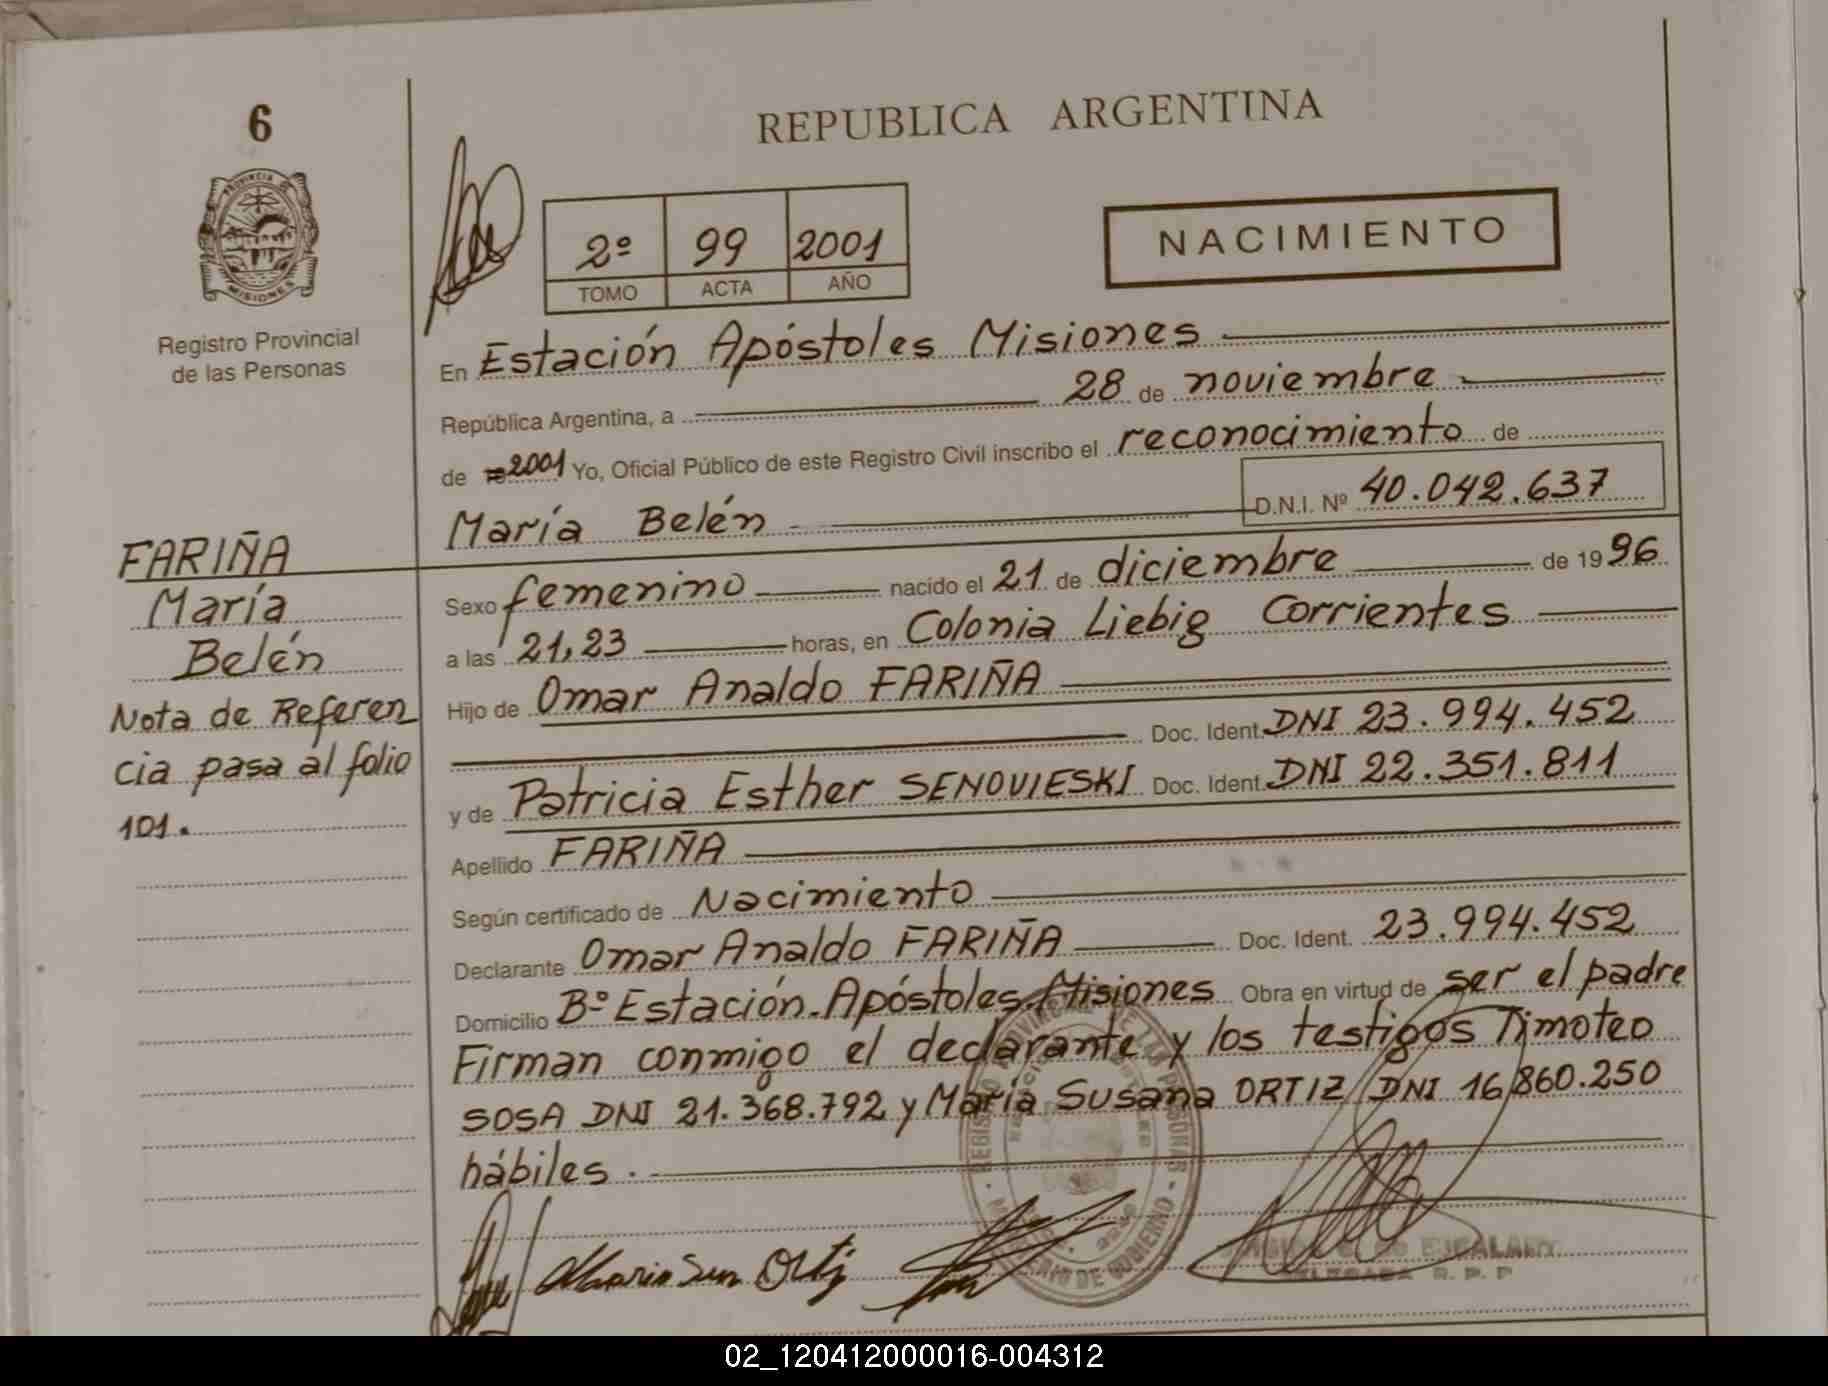 6
PROVINCIA DE
MISIONES
Registro Provincial
de las Personas
REPUBLICA ARGENTINA
2º 99 2001
TOMO ACTA AÑO
NACIMIENTO
En Estación Apóstoles Misiones
República Argentina, a 28 de noviembre
de 2001 Yo, Oficial Público de este Registro Civil inscribo el reconocimiento de
María Belén D.N.I. Nº 40.042.637
Sexo femenino nacido el 21 de diciembre de 1996
a las 21,23 horas, en Colonia Liebig Corrientes
Hijo de Omar Analdo FARIÑA
Doc. Ident. DNI 23.994.452
y de Patricia Esther SENOVIESKI Doc. Ident. DNI 22.351.811
Apellido FARIÑA
Según certificado de Nacimiento
Declarante Omar Analdo FARIÑA Doc. Ident. 23.994.452
Domicilio Bº Estación Apóstoles Misiones Obra en virtud de ser el padre
Firman conmigo el declarante y los testigos Timoteo
SOSA DNI 21.368.792 y María Susana ORTIZ DNI 16.860.250
hábiles.
FARIÑA
María
Belén
Nota de Referen
cia pasa al folio
101.
REGISTRO PROVINCIAL DE LAS PERSONAS
R. P. P
02_120412000016-004312